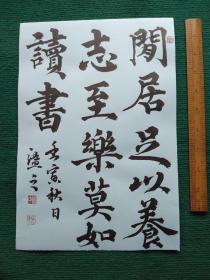 閒居足以養
志至樂莫如
讀書
壬寅秋日